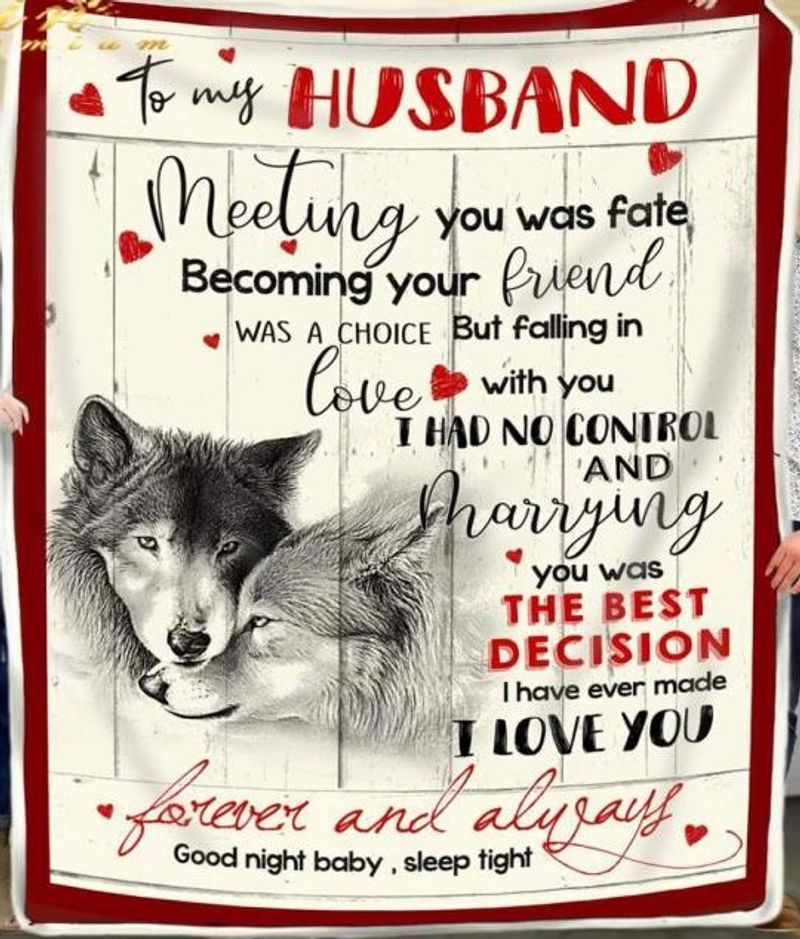 To my HUSBAND
Meeting you was fate
Becoming your friend
WAS A CHOICE But falling in
love with you
I HAD NO CONTROL
AND
Marrying
you was
THE BEST
DECISION
I have ever made
I LOVE YOU
forever and always
Good night baby , sleep tight